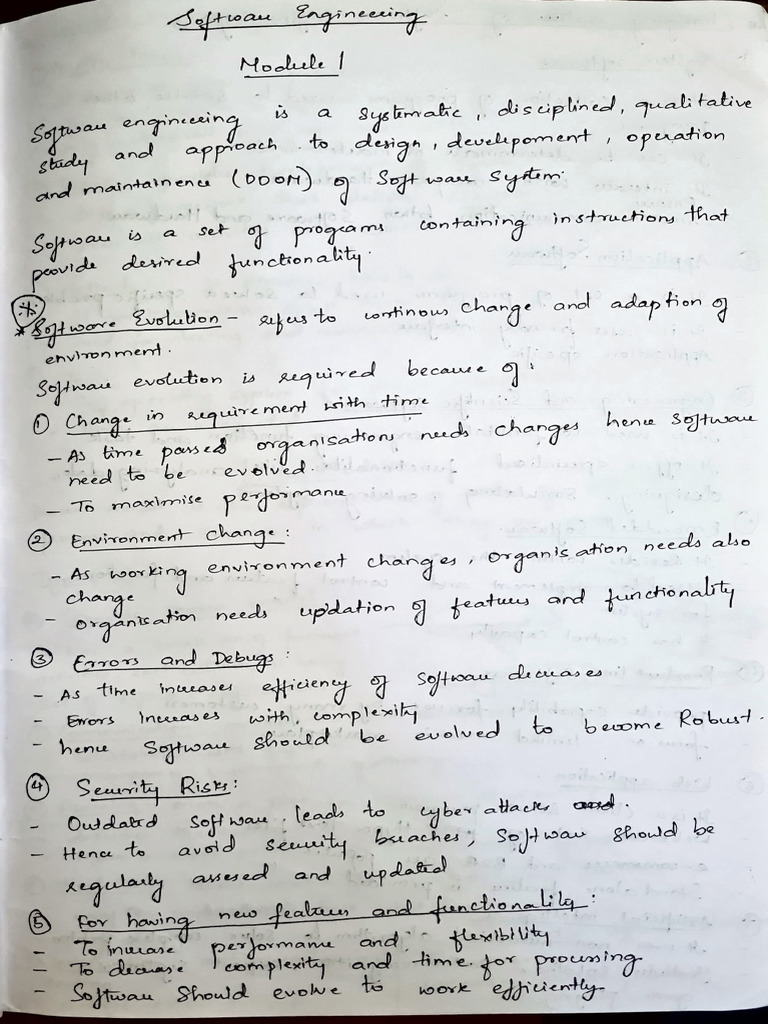 Software Engineering
Module 1
Software engineering is a systematic, disciplined, qualitative
study and approach to design, development, operation
and maintainence (DDOM) of Software System.
Software is a set of programs containing instructions that
provide desired functionality.
* Software Evolution - refers to continous change and adaption of
environment.
Software evolution is required because of:
① Change in requirement with time
- As time passed organisations needs changes hence software
need to be evolved.
- To maximise performance
② Environment change:
- As working environment changes, organisation needs also
change
- organisation needs updation of features and functionality
③ Errors and Debugs:
- As time increases efficiency of software decreases
- Errors increases with complexity
- hence software should be evolved to become Robust.
④ Security Risks:
- Outdated software leads to cyber attacks
- Hence to avoid security breaches, software should be
regularly assesed and updated
⑤ for having new features and functionality:
- To increase performance and flexibility
- To decrease complexity and time for processing
- Software should evolve to work efficiently